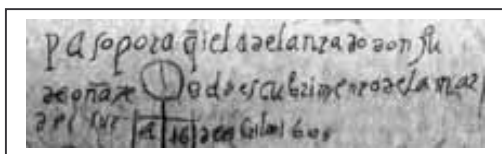 paso por aq̃i el adelantado don ju
de oñate al descubrimento de la mar
del sur a 16 de abril